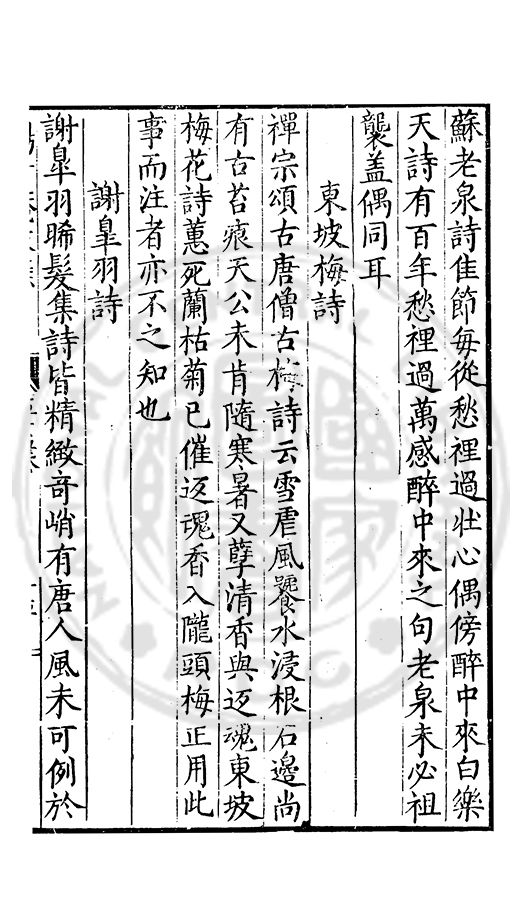 蘇老泉詩佳節每從愁裡過壯心偶傍醉中來白樂
天詩有百年愁裡過萬感醉中來之句老泉未必祖
襲盖偶同耳
東坡梅詩
禪宗頌古唐僧古梅詩云雪虐風饕水浸根石邊尚
有古苔痕天公未肯隨寒暑又孽清香與返魂東坡
梅花詩蕙死蘭枯菊已催返魂香入隴頭梅正用此
事而注者亦不之知也
謝臯羽詩
謝臯羽晞髮集詩皆精緻奇峭有唐人風未可例於